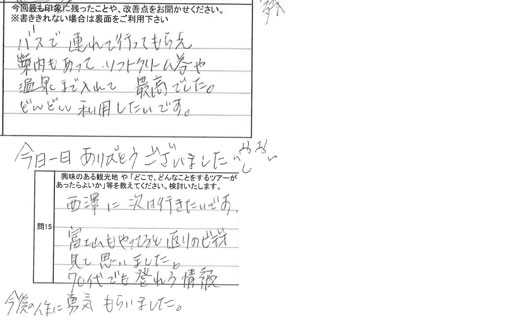 今回最も印象に残ったことや、改善点をお聞かせください。
※書ききれない場合は裏面をご利用下さい
バスで連れて行ってもらえ
案内もあって ソフトクリーム券や
温泉まで入れて 最高でした。
どんどん利用したいです。
今日一日 ありがとうございました
問15
興味のある観光地 や「どこで、どんなことをするツアーが
あったらよいか」等を教えてください。検討いたします。
西澤に次は行きたいです。
富士山も 帰りのビデオ
見て思いました。
70代でも登れる 情報
今後の人生に勇気 もらいました。